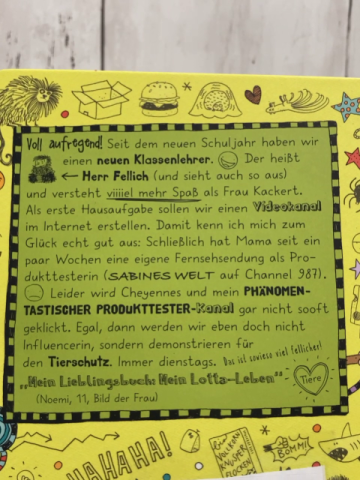 Voll aufregend! Seit dem neuen Schuljahr haben wir
einen neuen Klassenlehrer. Der heißt
← Herr Fellich (und sieht auch so aus)
und versteht viiiiel mehr Spaß als Frau Kackert.
Als erste Hausaufgabe sollen wir einen Videokanal
im Internet erstellen. Damit kenn ich mich zum
Glück echt gut aus: Schließlich hat Mama seit ein
paar Wochen eine eigene Fernsehsendung als Pro-
dukttesterin (SABINES WELT auf Channel 987).
Leider wird Cheyennes und mein PHÄNOMEN-
TASTISCHER PRODUKTTESTER-Kanal gar nicht sooft
geklickt. Egal, dann werden wir eben doch nicht
Influencerin, sondern demonstrieren für
den Tierschutz. Immer dienstags. Das ist sowieso viel fellicher!
„Mein Lieblingsbuch: Mein Lotta-Leben“
Tiere
(Noemi, 11, Bild der Frau)
HAHAHA!
BOMM!